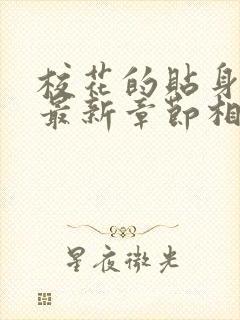 校花的贴身
最新章节相
星夜微光